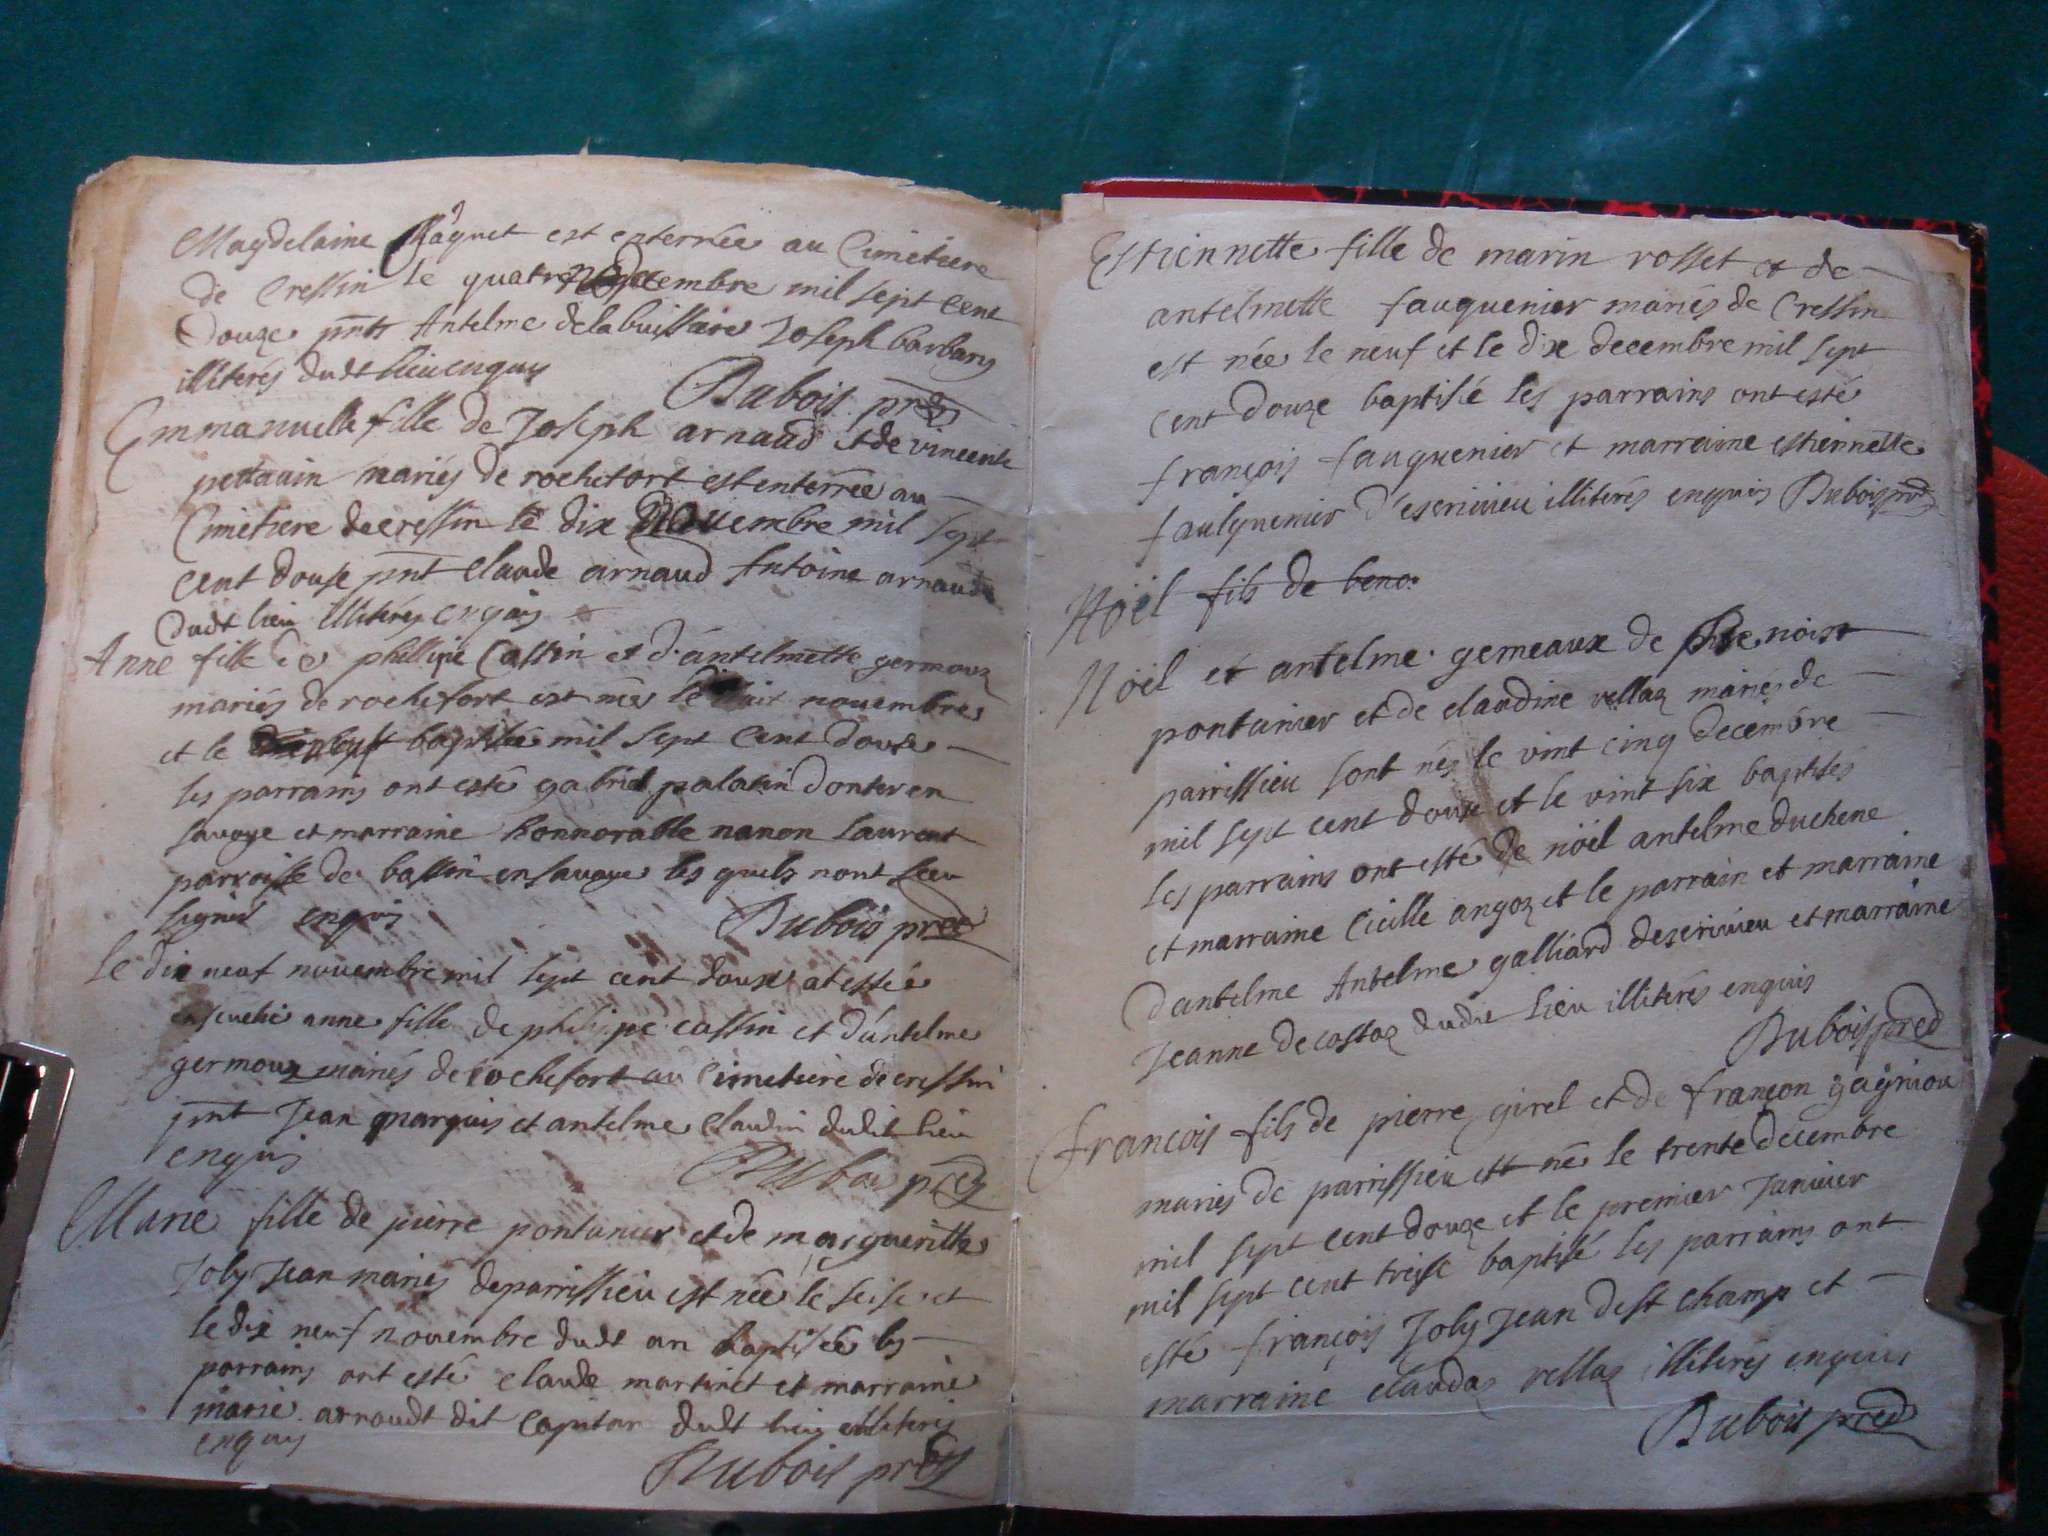 Magdelaine Paquet est enterrée au Cimetiere
de Cressin le quatre novembre mil sept cent
douze pnts Antelme delabuissiere Joseph barbary
illiterés dudt lieu enquis
Dubois pred
Emmanuelle fille de Joseph arnaud et de vincente
mariés de rochefort est enterrée au
Cimetiere de cressin le dix novembre mil sept
cent douse pnt claude arnaud Antoine arnaud
dudt lieu illiterés enquis
Anne fille de philipe Cassin et d'antelmette germoux
mariés de rochefort est née le huit novembre
et le baptisée mil sept cent douse
les parrains ont esté gabriel palatin
savoye et marraine honnorable nanon laurent
parroisse de bassin en savoye les quels nont sceu
signer enquis
Dubois pred
Le dix neuf novembre mil sept cent douse a esté
ensevelie anne fille de philipe cassin et d'antelme
germoux mariés de rochefort au cimetiere de cressin
pnt Jean marquis et antelme claudin dudit lieu
enquis
Dubois pred
Marie fille de pierre pontanier et de margueritte
Joly Jean mariés de parrissieu est née le seise et
le dix neuf novembre dudt an baptisée les
parrains ont esté claude martinet et marraine
marie arnaudt dit capitan dudt lieu illiterés
enquis
Dubois pred
Estiennette fille de marin rosset et de
antelmette fauquenier mariés de Cressin
est née le neuf et le dix decembre mil sept
cent douze baptisé les parrains ont esté
françois fauquenier et marraine estiennette
faulquenier d'escrivieu illiterés enquis Dubois pred
Noël fils de beno
Noël et antelme gemeaux de benoist
pontanier et de claudine vellaz mariés de
parrissieu sont nés le vint cinq decembre
mil sept cent douse et le vint six baptisés
Les parrains ont esté de noël antelme duchene
et marraine Cicille angoz et le parrain et marraine
dantelme Antelme galliard descrivieu et marraine
Jeanne decostaz dudit lieu illiterés enquis
Dubois pred
françois fils de pierre girel et de françon gagniou
mariés de parrissieu est né le trente decembre
mil sept cent douze et le premier Janvier
mil sept cent treise baptisé les parrains ont
esté françois Joly Jean de st champ et
marraine claudaz vellaz illiterés enquis
Dubois pred